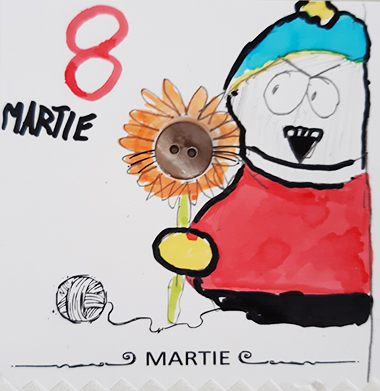 8
MARTIE
MARTIE